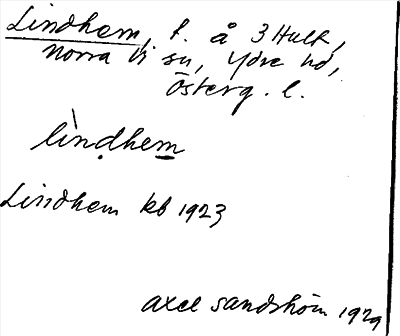 Lindhem, t. å 3 Hult,
Norra Vi sn, Ydre hd,
Österg. l.
lìndhem
Lindhem kb 1923
Axel Sandström 1929